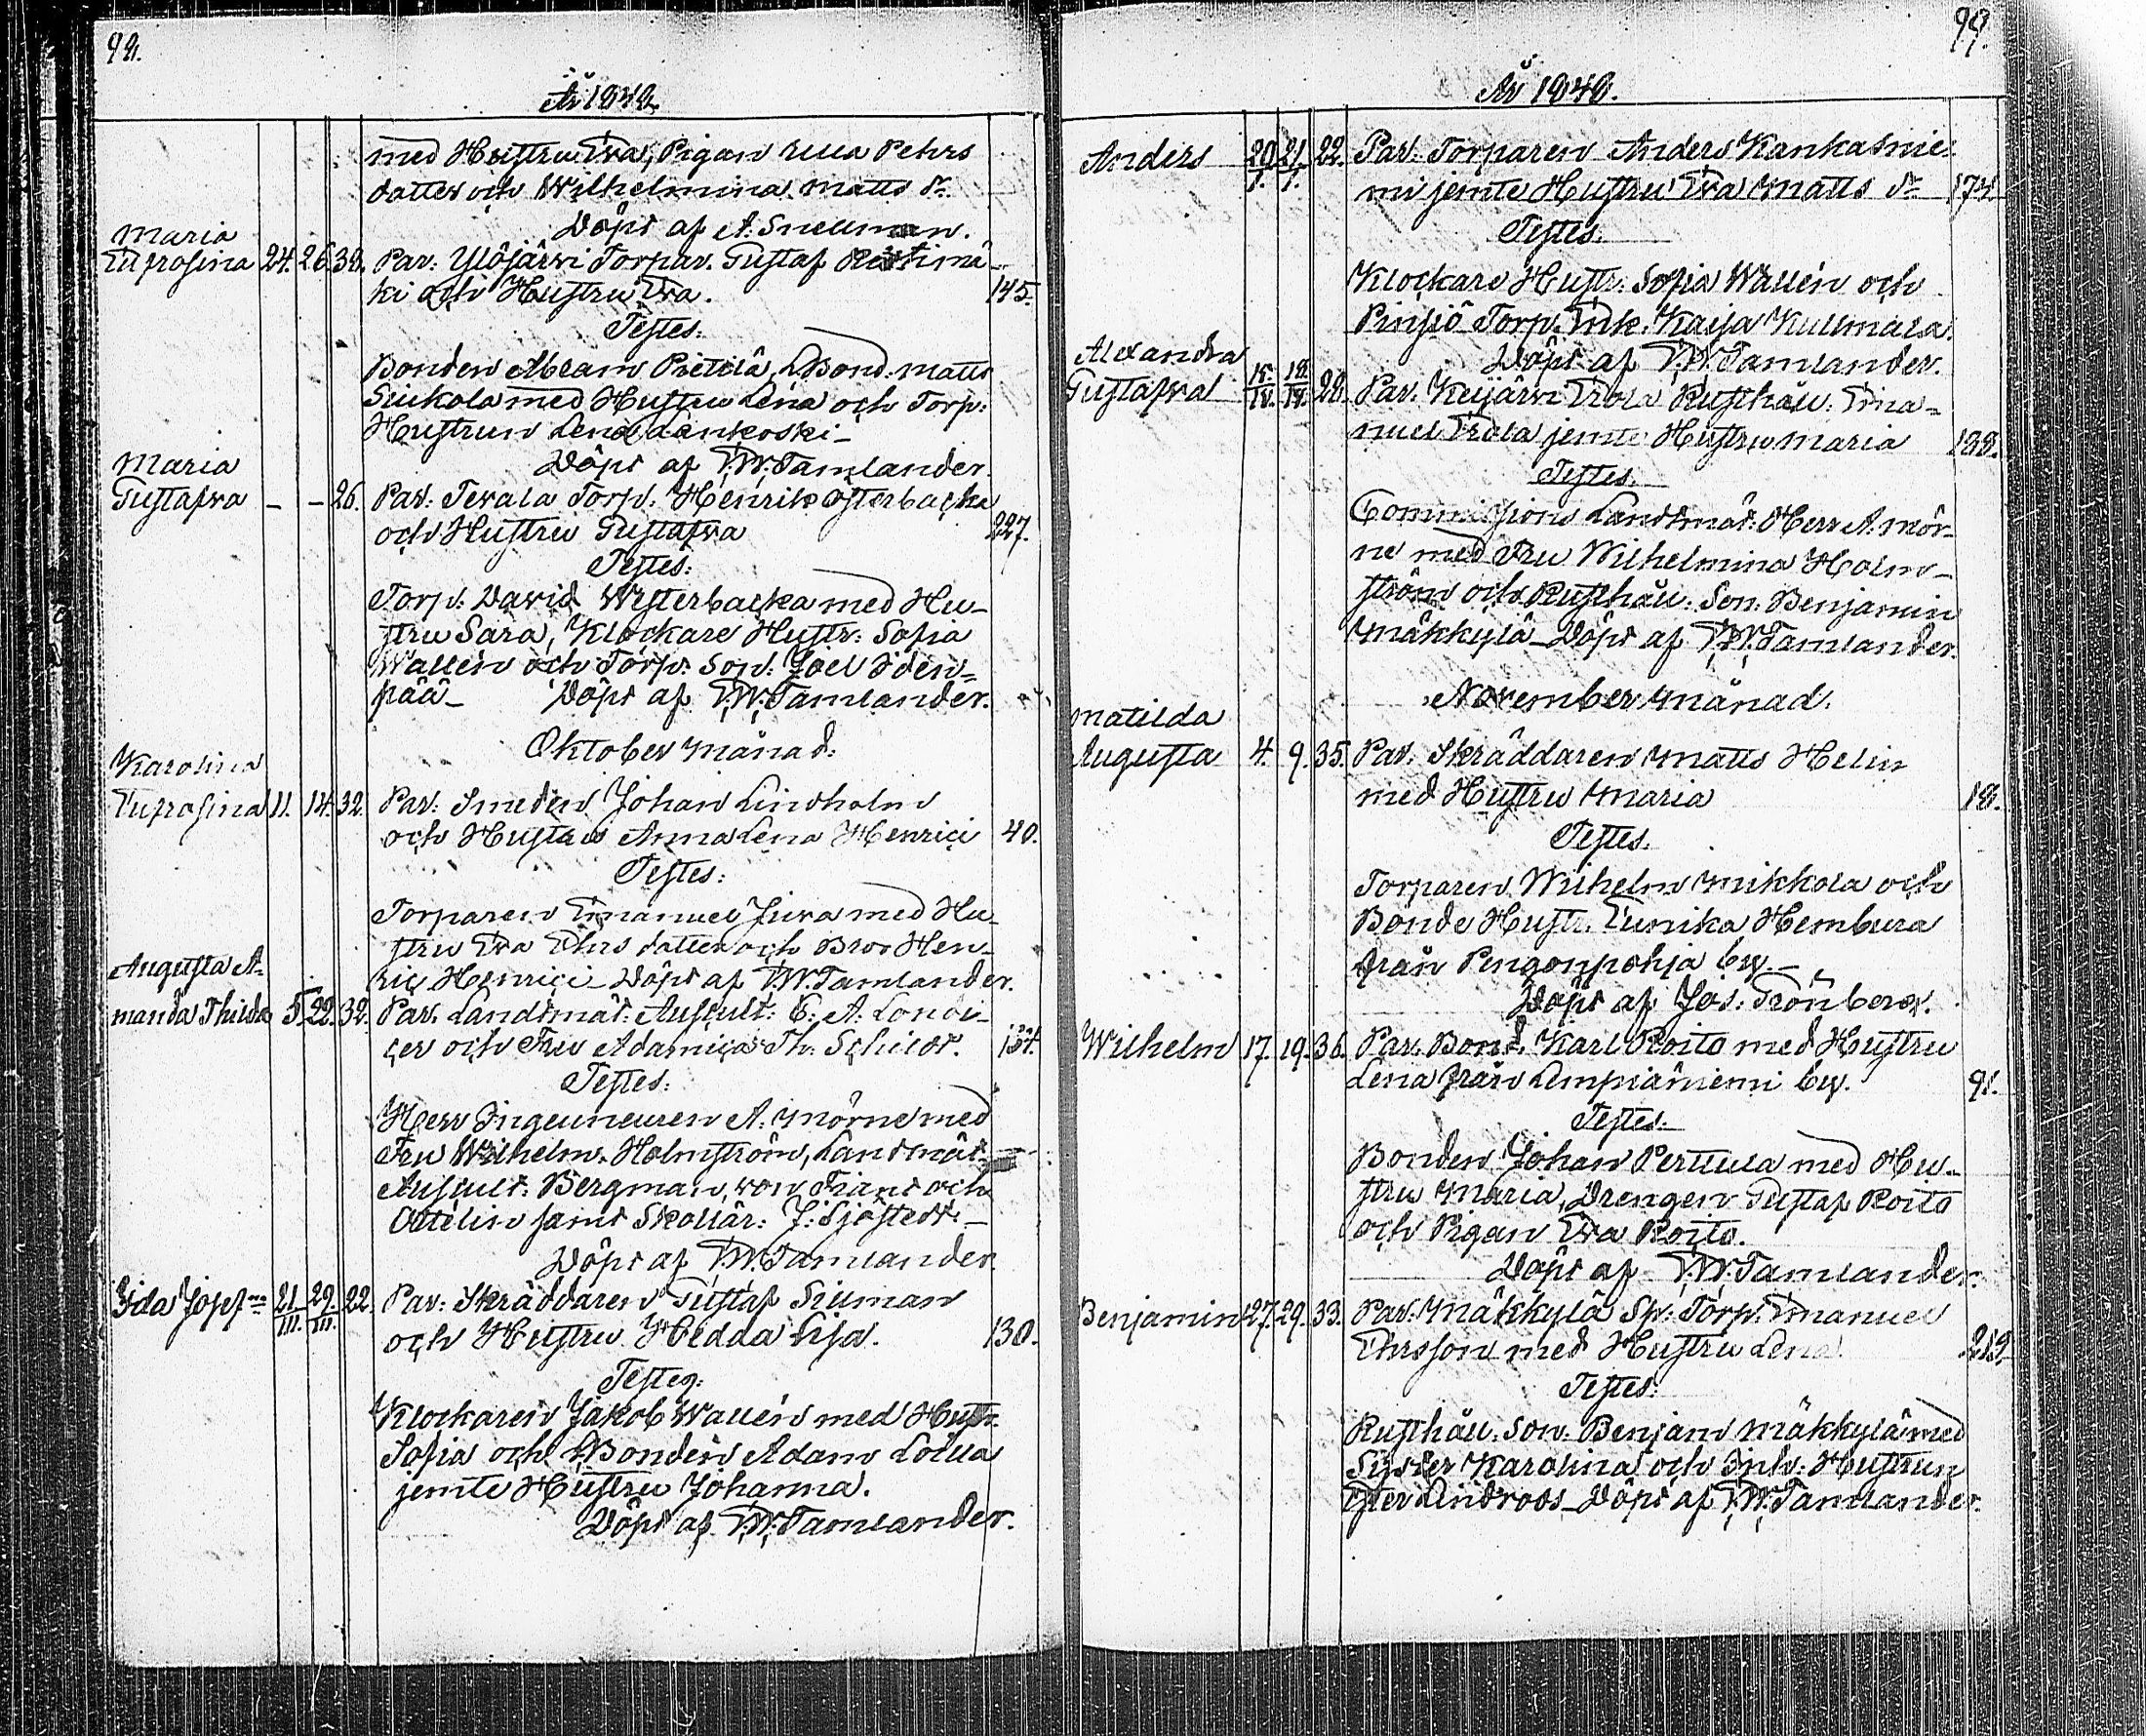 98.
År 1848.
med Hustru Eva, Pigan Ulla Pehrs
dotter och Wilhelmina Matts dr
Döpt af A. Snellman.
Maria
Eufrosina 24. 26. 38. Par: Ylöjärwi Torpar. Gustaf Ristimä-
ki och Hustru Eva. 145.
Testes:
Bonden Abram Pietilä, Bond. Matts
Siukola med Hustru Lena och Torp:
Hustrun Lena Lankoski-
Döpt af F.W. Tamlander.
Maria
Gustafva - - 26. Par: Tevala Torp: Henrik Österbacka
och Hustru Gustafva 227.
Testes:
Torp: David Westerbacka med Hu-
stru Sara, Klockare Hustr: Sofia
Wallén och Torp: Son: Joel Iden-
pää- Döpt af F.W. Tamlander.
Oktober Månad:
Karolina
Eufrosina 11. 14. 32. Par: Smeden Johan Lindholm
och Hustru Anna Lena Henrici 40.
Testes:
Torparen Emanuel Juva med Hu-
stru Eva Ehrs dotter och Bror Hen-
ric Henrici- Döpt af F.W. Tamlander.
Augusta A-
manda Thilda 5. 22. 32. Par. Landtmät: Auscult: C. A. Londi-
cer och Fru Adamica Th. Schildt. 134.
Testes:
Herr Ingeuneuren A. Mörne med
Fru Wilhelm. Holmström, Landtmät.
Auscult: Bergman, von Frans och
Ottelin samt Skollär: J: Sjöstedt-
Döpt af F.W. Tamlander.
Ida Josefna 21/III. 29/III. 22. Par: Skräddaren Gustaf Siuman
och Hustru Hedda Lisa. 130.
Testes:
Klockaren Jakob Wallén med Hustr.
Sofia och Bonden Adam Loilla
jemte Hustru Johanna.
Döpt af F.W. Tamlander.
99.
År 1848.
Anders 20/I. 21/I. 22. Par: Torparen Anders Kankasnie-
mi jemte Hustru Eva Matts dr 174.
Testes.
Klockare Hustr: Sofia Wallén och
Pinsiö Torp. Enk. Kaisa Kullmala.
Döpt af F.W. Tamlander.
Alexandra
Gustafva 15/IV. 18/IV. 28. Par. Keijärwi Erola Rusthåll: Ema-
nuel Erola jemte Hustru Maria 138.
Testes.
Commissions Landtmät: Herr A. Mör-
ne med Fru Wilhelmina Holm-
ström och Rusthåll: Son: Benjamin
Mäkkylä- Döpt af F.W. Tamlander.
November Månad.
Matilda
Augusta 4. 9. 35. Par. Skräddaren Matts Helin
med Hustru Maria 18.
Testes.
Torparen Wilhelm Mikkola och
Bonde Hustr. Eunika Hembura
från Pengonpohja by-
Döpt af Jos: Grönberg.
Wilhelm 17. 19. 36. Par. Bond. Karl Roito med Hustru
Lena från Lempiäniemi by. 91.
Testes-
Bonden Johan Perttula med Hu-
stru Maria, Drengen Gustaf Roito
och Pigan Eva Roito.
Döpt af F.W. Tamlander.
Benjamin 27. 29. 33. Par. Mäkkylä Sp: Torp. Emanuel
Ehrsson med Hustru Lena. 219.
Testes:
Rusthåll: Son: Benjam Mäkkylä med
Syster Karolina och Inh: Hustrun
Ester Lindroos- Döpt af F.W. Tamlander.